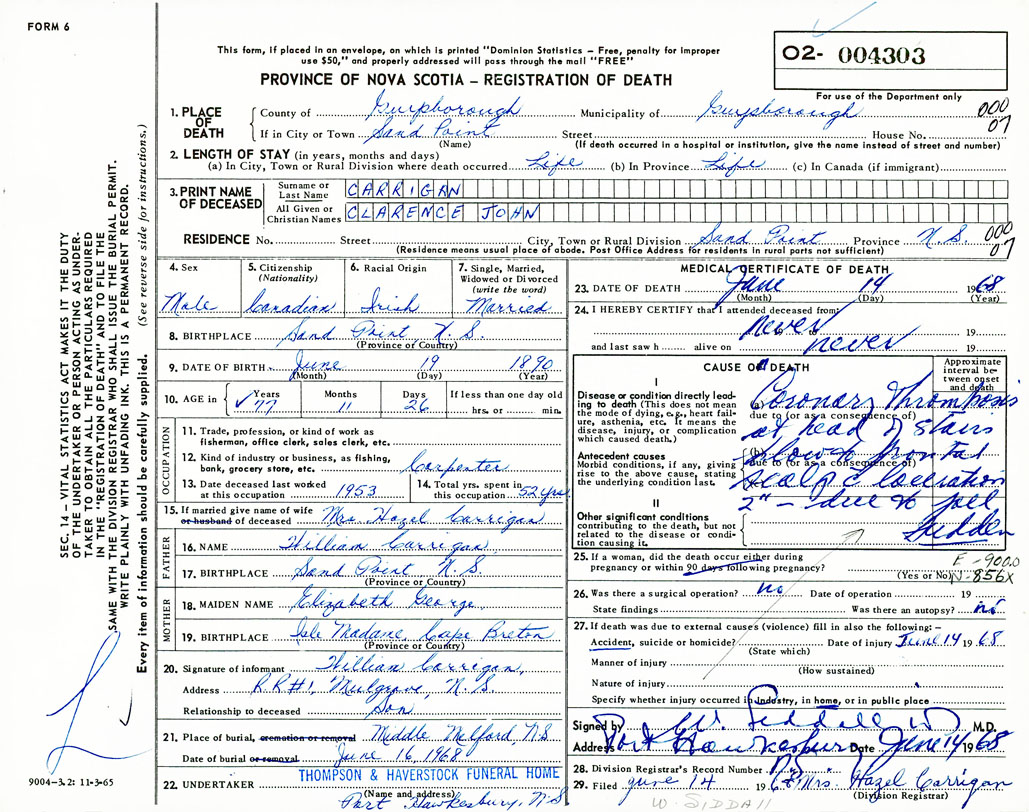 FORM 6
This form, if placed in an envelope, on which is printed "Dominion Statistics – Free, penalty for improper
use $50," and properly addressed will pass through the mail "FREE"
02- 004303
PROVINCE OF NOVA SCOTIA – REGISTRATION OF DEATH
For use of the Department only
1. PLACE OF DEATH
County of Guysborough Municipality of Guysborough 000
If in City or Town Sand Point Street House No. 07
(Name) (If death occurred in a hospital or institution, give the name instead of street and number)
2. LENGTH OF STAY (in years, months and days)
(a) In City, Town or Rural Division where death occurred Life (b) In Province Life (c) In Canada (if immigrant)
3. PRINT NAME OF DECEASED
Surname or Last Name CARRIGAN
All Given or Christian Names CLARENCE JOHN
RESIDENCE No. Street City, Town or Rural Division Sand Point Province N.S. 000
(Residence means usual place of abode. Post Office Address for residents in rural parts not sufficient) 07
SEC. 14 – VITAL STATISTICS ACT MAKES IT THE DUTY
OF THE UNDERTAKER OR PERSON ACTING AS UNDER-
TAKER TO OBTAIN ALL THE PARTICULARS REQUIRED
IN THE "REGISTRATION OF DEATH" AND TO FILE THE
SAME WITH THE DIVISION REGISTRAR WHO SHALL ISSUE THE BURIAL PERMIT.
WRITE PLAINLY WITH UNFADING INK. THIS IS A PERMANENT RECORD.
Every item of information should be carefully supplied. (See reverse side for instructions.)
4. Sex
Male
5. Citizenship
(Nationality)
Canadian
6. Racial Origin
Irish
7. Single, Married,
Widowed or Divorced
(write the word)
Married
8. BIRTHPLACE Sand Point, N.S.
(Province or Country)
9. DATE OF BIRTH June 19 1890
(Month) (Day) (Year)
10. AGE in Years Months Days If less than one day old
77 11 26 hrs. or min.
OCCUPATION
11. Trade, profession, or kind of work as
fisherman, office clerk, sales clerk, etc.
12. Kind of industry or business, as fishing,
bank, grocery store, etc. Carpenter
13. Date deceased last worked
at this occupation 1953
14. Total yrs. spent in
this occupation 52 yrs
15. If married give name of wife
or husband of deceased Mrs. Hazel Carrigan
FATHER
16. NAME William Carrigan
17. BIRTHPLACE Sand Point N.S.
(Province or Country)
MOTHER
18. MAIDEN NAME Elizabeth George
19. BIRTHPLACE Isle Madame, Cape Breton
(Province or Country)
20. Signature of informant William Carrigan,
Address R.R#1, Mulgrave, N.S.
Relationship to deceased Son
21. Place of burial, cremation or removal Middle Melford, N.S
Date of burial or removal June 16, 1968
22. UNDERTAKER THOMPSON & HAVERSTOCK FUNERAL HOME
(Name and address)
Port Hawkesbury, N.S
9004–3.2: 11-3-65
MEDICAL CERTIFICATE OF DEATH
23. DATE OF DEATH June 14 1968
(Month) (Day) (Year)
24. I HEREBY CERTIFY that I attended deceased from:
never 19
and last saw h alive on never 19
CAUSE OF DEATH
Approximate
interval be-
tween onset
and death
I
Disease or condition directly lead-
ing to death (This does not mean
the mode of dying, e.g., heart fail-
ure, asthenia, etc. It means the
disease, injury, or complication
which caused death.)
(a) Coronary Thrombosis
due to (or as a consequence of)
at head of stairs
Antecedent causes
Morbid conditions, if any, giving
rise to the above cause, stating
the underlying condition last.
(b)
due to (or as a consequence of)
frontal
scalp laceration
2" – due to fall
II
Other significant conditions
contributing to the death, but not
related to the disease or condi-
tion causing it.
Sudden
25. If a woman, did the death occur either during
pregnancy or within 90 days following pregnancy?
(Yes or No)
E-900.0
N-856X
26. Was there a surgical operation? no Date of operation 19
State findings Was there an autopsy? no
27. If death was due to external causes (violence) fill in also the following:–
Accident, suicide or homicide? Date of injury June 14 1968
(State which)
Manner of injury
(How sustained)
Nature of injury
Specify whether injury occurred in industry, in home, or in public place
Signed by M.D.
Address Port Hawkesbury Date June 14 1968
28. Division Registrar's Record Number
29. Filed June 14 1968 Mrs. Hazel Carrigan
(Division Registrar)
W. SIDDALL